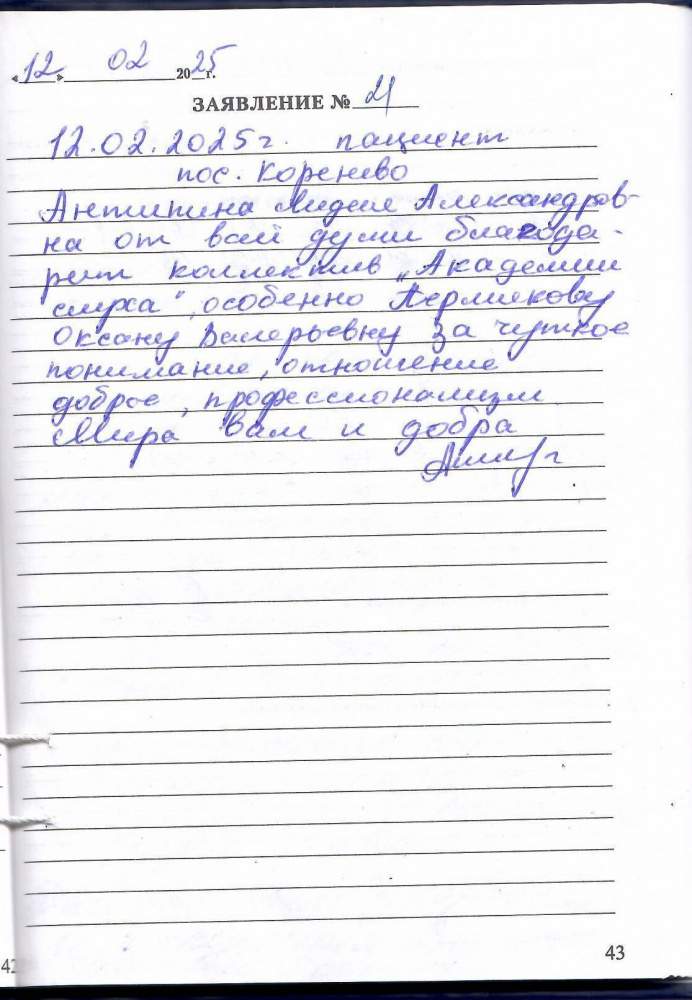 «12» 02 2025 г.
ЗАЯВЛЕНИЕ № 21
12.02.2025 г. пациент
пос. Коренево
Антипина Лидия Александров-
на от всей души благода-
рит коллектив „Академии
слуха", особенно Пермякову
Оксану Валерьевну за чуткое
понимание, отношение
доброе, профессионализм.
Мира Вам и добра
43
42